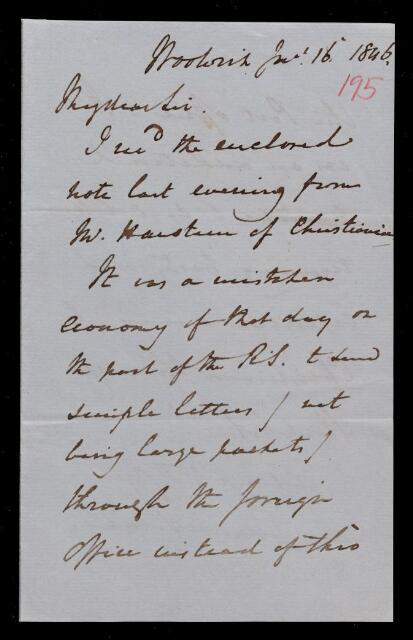 Woolwich Jany. 16. 1846.
195
My dear Sir.
I recd the enclosed
note last evening from
Mr. Hansteen of Christiania
It was a mistaken
economy of that day on
the part of the R.S. to send
simple letters / not
being large packets /
through the foreign
office instead of thro